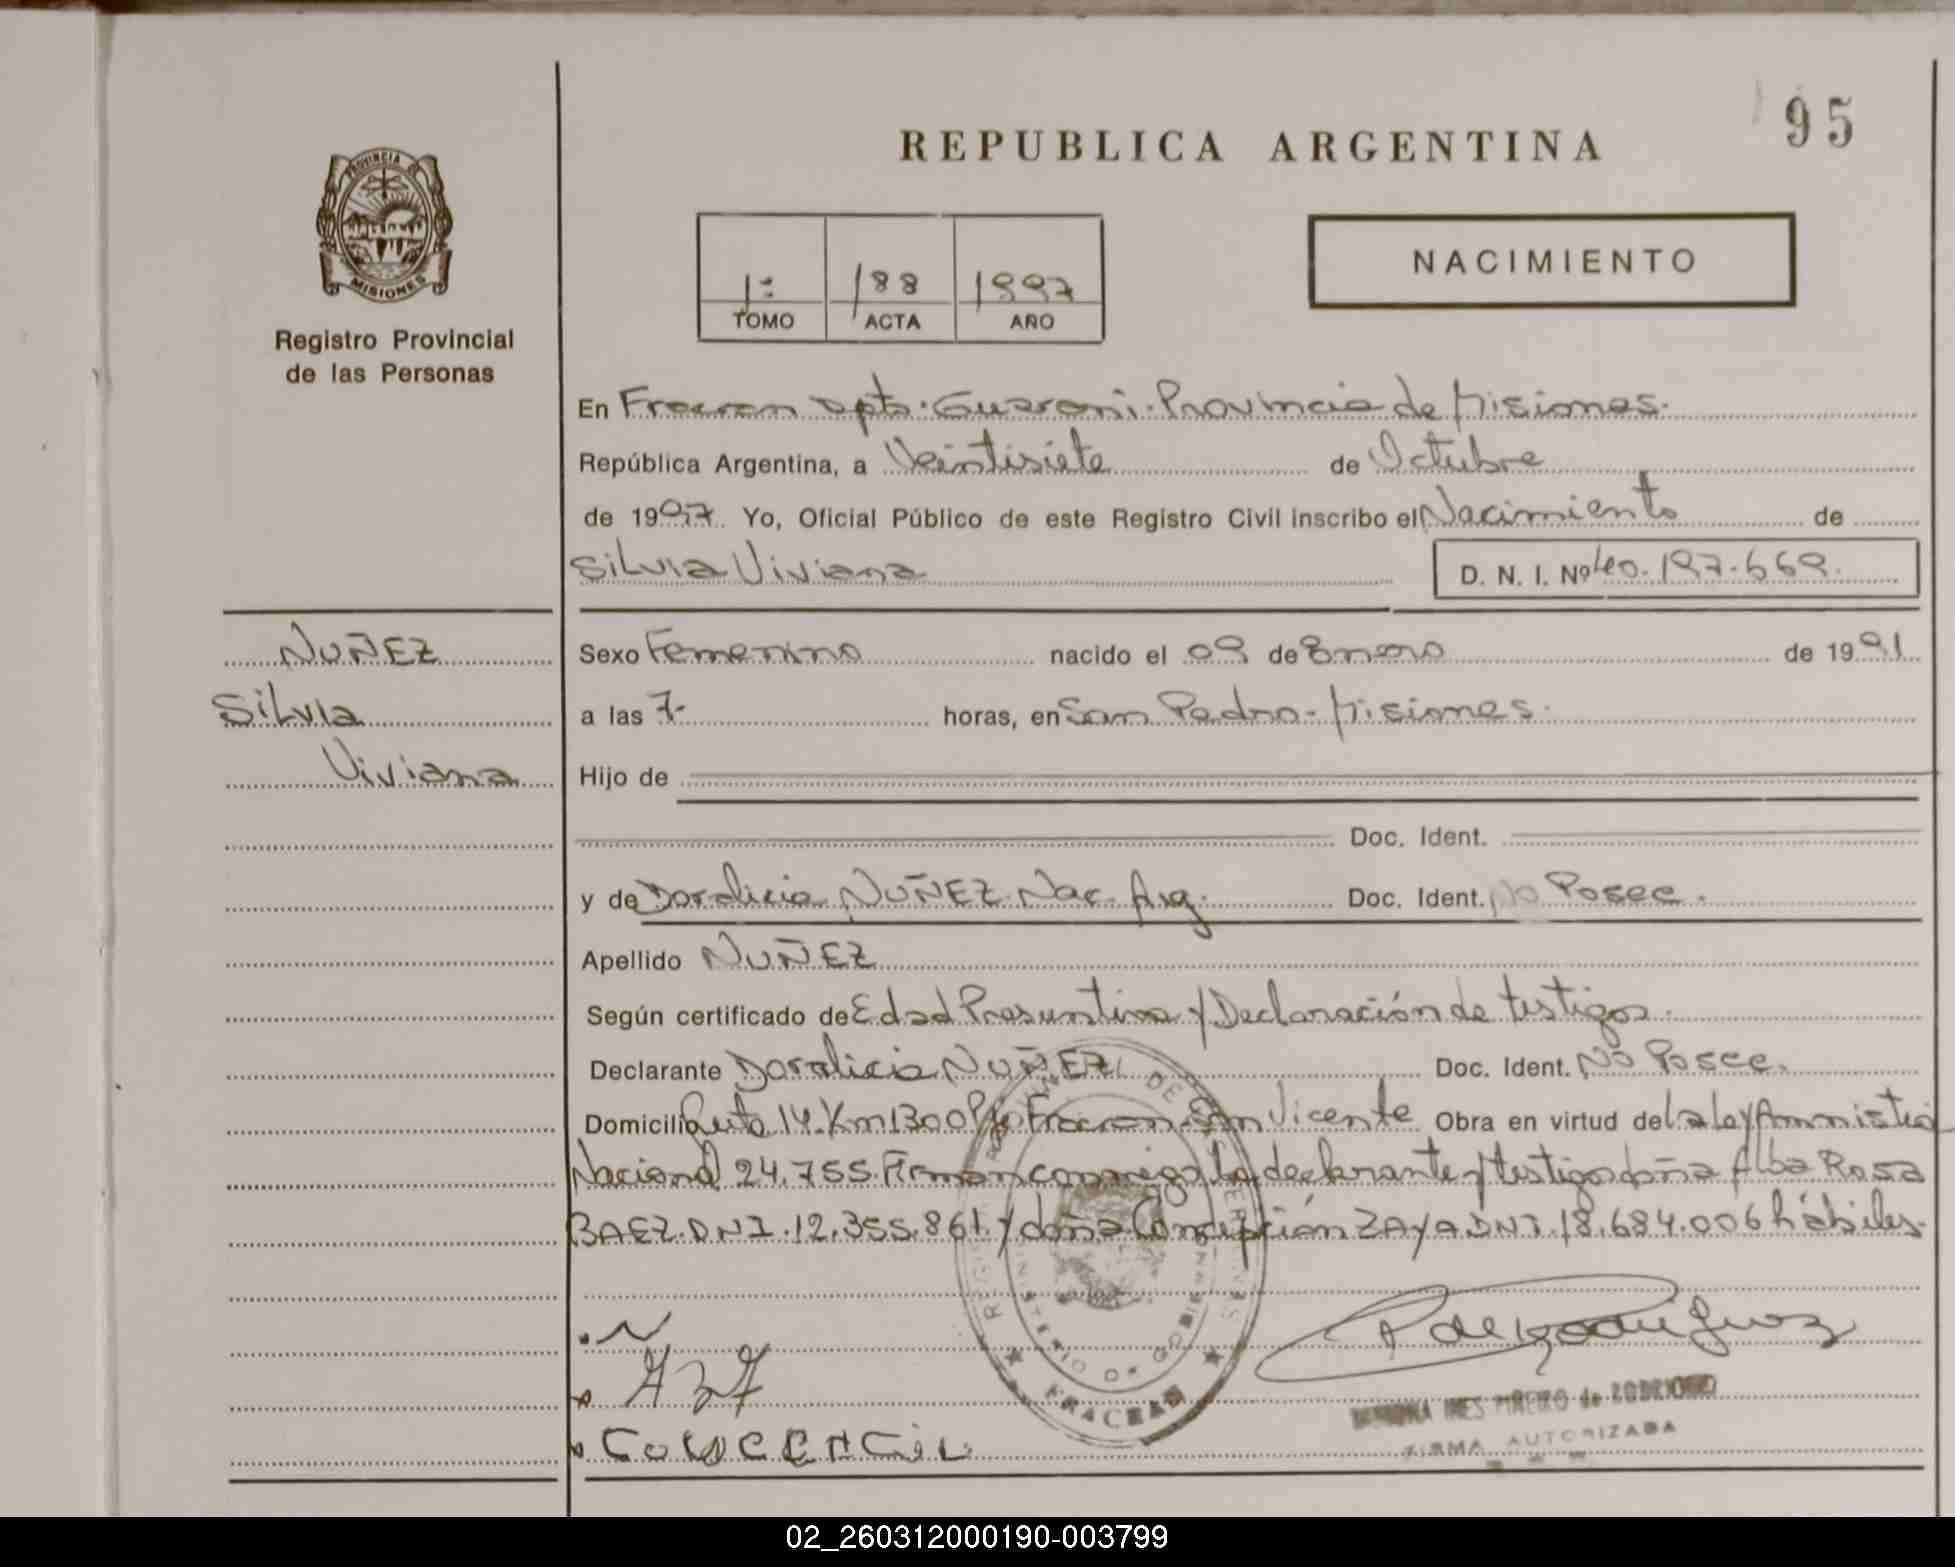 95
REPUBLICA ARGENTINA
PROVINCIA
MISIONES
Registro Provincial
de las Personas
NACIMIENTO
1º 188 1997
TOMO ACTA AÑO
En Fracran Dpto. Guarani. Provincia de Misiones.
República Argentina, a Veintisiete de Octubre
de 1997. Yo, Oficial Público de este Registro Civil inscribo el Nacimiento de
Silvia Viviana D. N. I. Nº 40.197.669.
NUÑEZ
Silvia
Viviana
Sexo Femenino nacido el 09 de Enero de 1991
a las 7- horas, en San Pedro - Misiones.
Hijo de
Doc. Ident.
y de Doralicia NUÑEZ Nac. Arg. Doc. Ident. No Posee.
Apellido NUÑEZ
Según certificado de Edad Presuntiva y Declaración de testigos.
Declarante Doralicia NUÑEZ Doc. Ident. No Posee.
Domicilio Ruta 14 Km 1300 Pje Fracran - San Vicente Obra en virtud de la Ley Amnistia
Nacional 24.755. Firman conmigo la declarante y testigo doña Alba Rosa
BAEZ. DNI. 12.355.861. y doña Concepción ZAYA DNI. 18.684.006 hábiles.
MINISTERIO DE GOBIERNO
FRACRAN
INES PIÑEIRO de RODRIGUEZ
FIRMA AUTORIZADA
02_260312000190-003799